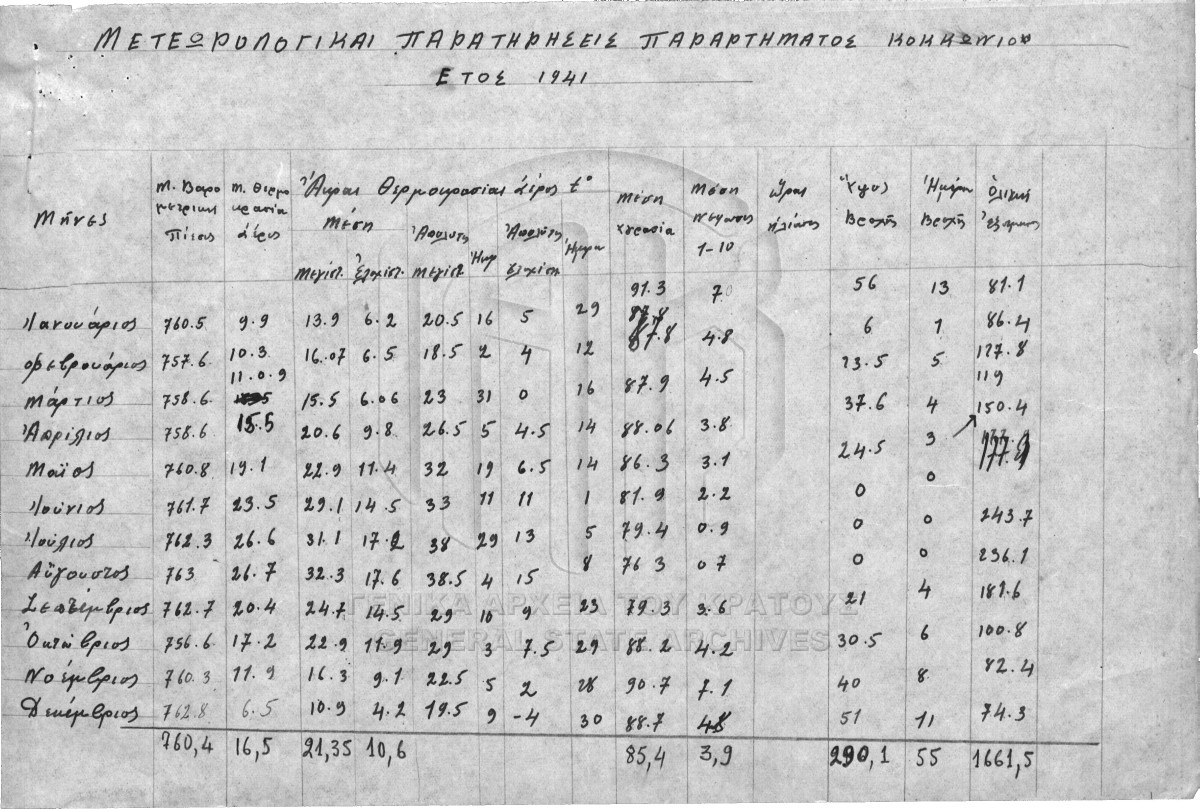 ΜΕΤΕΩΡΟΛΟΓΙΚΑΙ ΠΑΡΑΤΗΡΗΣΕΙΣ ΠΑΡΑΡΤΗΜΑΤΟΣ ΚΟΚΚΩΝΙΟΥ
ΕΤΟΣ 1941
Μήνες Μ. Βαρομετρική Πίεσις Μ. θερμοκρασία ἀέρος Ἄκραι θερμοκρασίαι ἀέρος t° Μέση ὑγρασία Μέση νέφωσις 1-10 Ὥραι ἡλιάσεως Ὕψος Βροχῆς Ἡμέραι Βροχῆς Ὁλική ἐξάτμισις
Μέση Ἀπολύτη Μεγίστ. Ἡμέρ Ἀπολύτη Ἐλαχίστ Ἡμέρα
Μεγίστ. Ἐλαχίστ.
Ἰανουάριος 760.5 9.9 13.9 6.2 20.5 16 5 29 91.3 7 56 13 81.1
Φεβρουάριος 757.6 10.3 16.07 6.5 18.5 2 4 12 87.8 4.8 6 1 86.4
Μάρτιος 758.6 11.0.9 15.5 6.06 23 31 0 16 87.9 4.5 23.5 5 127.8
119
Ἀπρίλιος 758.6 15.5 20.6 9.8 26.5 5 4.5 14 88.06 3.8 37.6 4 150.4
Μαϊος 760.8 19.1 22.9 11.4 32 19 6.5 14 86.3 3.1 24.5 3 177.9
Ἰούνιος 761.7 23.5 29.1 14.5 33 11 11 1 81.9 2.2 0 0
Ἰούλιος 762.3 26.6 31.1 17.2 38 29 13 5 79.4 0.9 0 0 243.7
Αὔγουστος 763 26.7 32.3 17.6 38.5 4 15 8 76 3 0 7 0 0 236.1
Σεπτέμβριος 762.7 20.4 24.7 14.5 29 10 9 23 79.3 3.6 21 4 181.6
Ὀκτώβριος 756.6 17.2 22.9 11.9 29 3 7.5 29 88.2 4.2 30.5 6 100.8
Νοέμβριος 760.3 11.9 16.3 9.1 22.5 5 2 28 90.7 7.1 40 8 82.4
Δεκέμβριος 762.8 6.5 10.9 4.2 19.5 9 -4 30 88.7 4.8 51 11 74.3
760,4 16,5 21,35 10,6 85,4 3,9 290,1 55 1661,5
ΓΕΝΙΚΑ ΑΡΧΕΙΑ ΤΟΥ ΚΡΑΤΟΥΣ
GENERAL STATE ARCHIVES